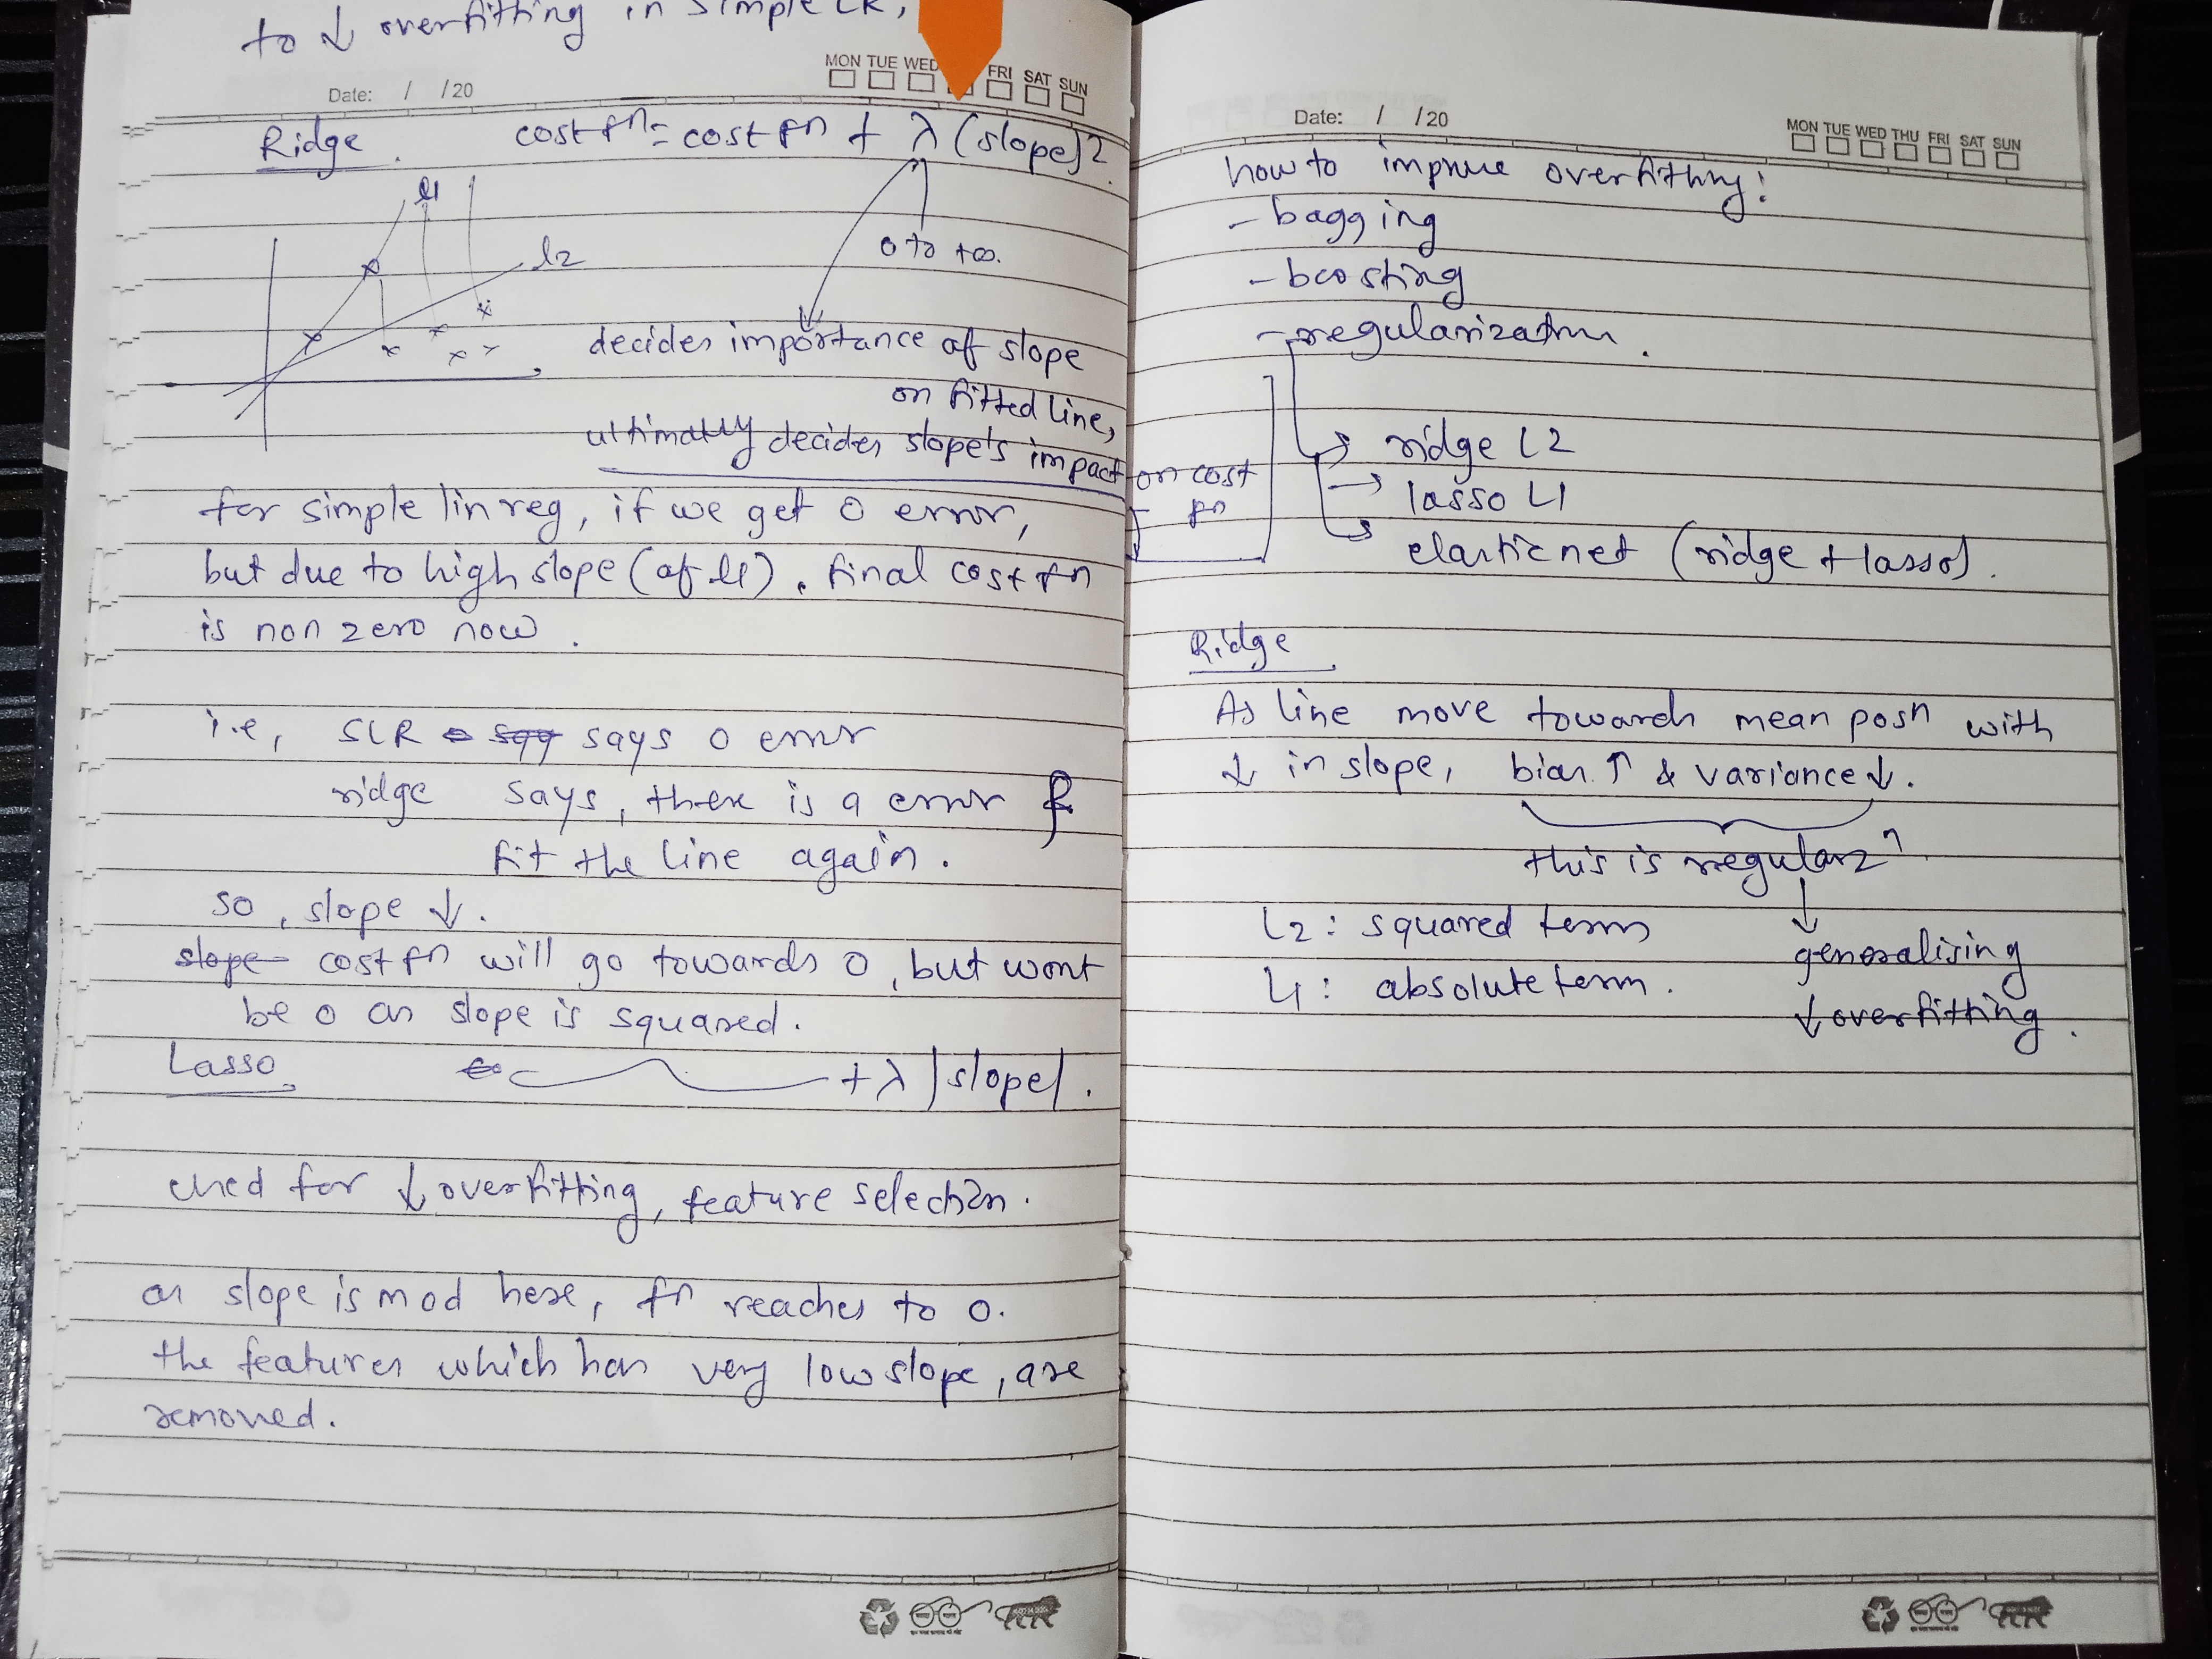 to ↓ overfitting in simple LR,
MON TUE WED FRI SAT SUN
Date: / /20
Ridge. cost fn = cost fn + λ (slope)2.
l1
l2
0 to +∞.
decides importance of slope
on fitted line,
ultimatly decides slope's impact on cost
fn
for simple lin reg, if we get 0 error,
but due to high slope (of l1). final cost fn
is non zero now.
i.e, SLR says 0 error
ridge says, there is a error &
fit the line again.
so, slope ↓.
slope cost fn will go towards 0, but wont
be 0 as slope is squared.
Lasso + λ |slope|.
used for ↓ overfitting, feature selection.
as slope is mod here, fn reaches to 0.
the features which has very low slope, are
removed.
Date: / /20
MON TUE WED THU FRI SAT SUN
how to improve overfitting:
- bagging
- boosting
- regularization.
→ ridge L2
→ lasso L1
→ elasticnet (ridge + lasso).
Ridge
As line move towards mean posn with
↓ in slope, bias ↑ & variance ↓.
this is regularzn.
↓
L2: squared term
generalising
L1: absolute term.
↓ overfitting.